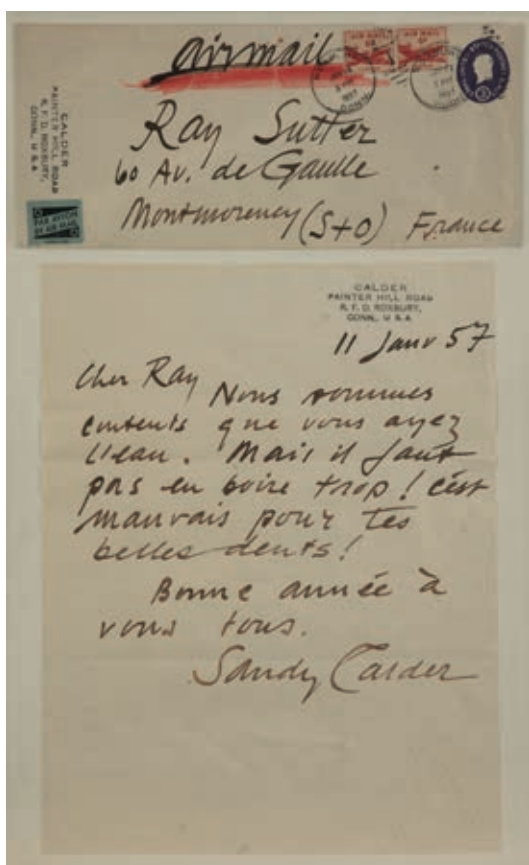 airmail
AIR MAIL
AIR MAIL
CALDER
PAINTER HILL ROAD
R. F. D. ROXBURY,
CONN., U S A
PAR AVION
BY AIR MAIL
Ray Sutter
60 Av. de Gaulle
Montmorency (S+O) France
CALDER
PAINTER HILL ROAD
R. F. D. ROXBURY,
CONN., U S A
11 Janv 57
Cher Ray
Nous sommes
contents que vous ayez
l'eau. Mais il faut
pas en boire trop! c'est
mauvais pour tes
belles dents!
Bonne année à
vous tous.
Sandy Calder